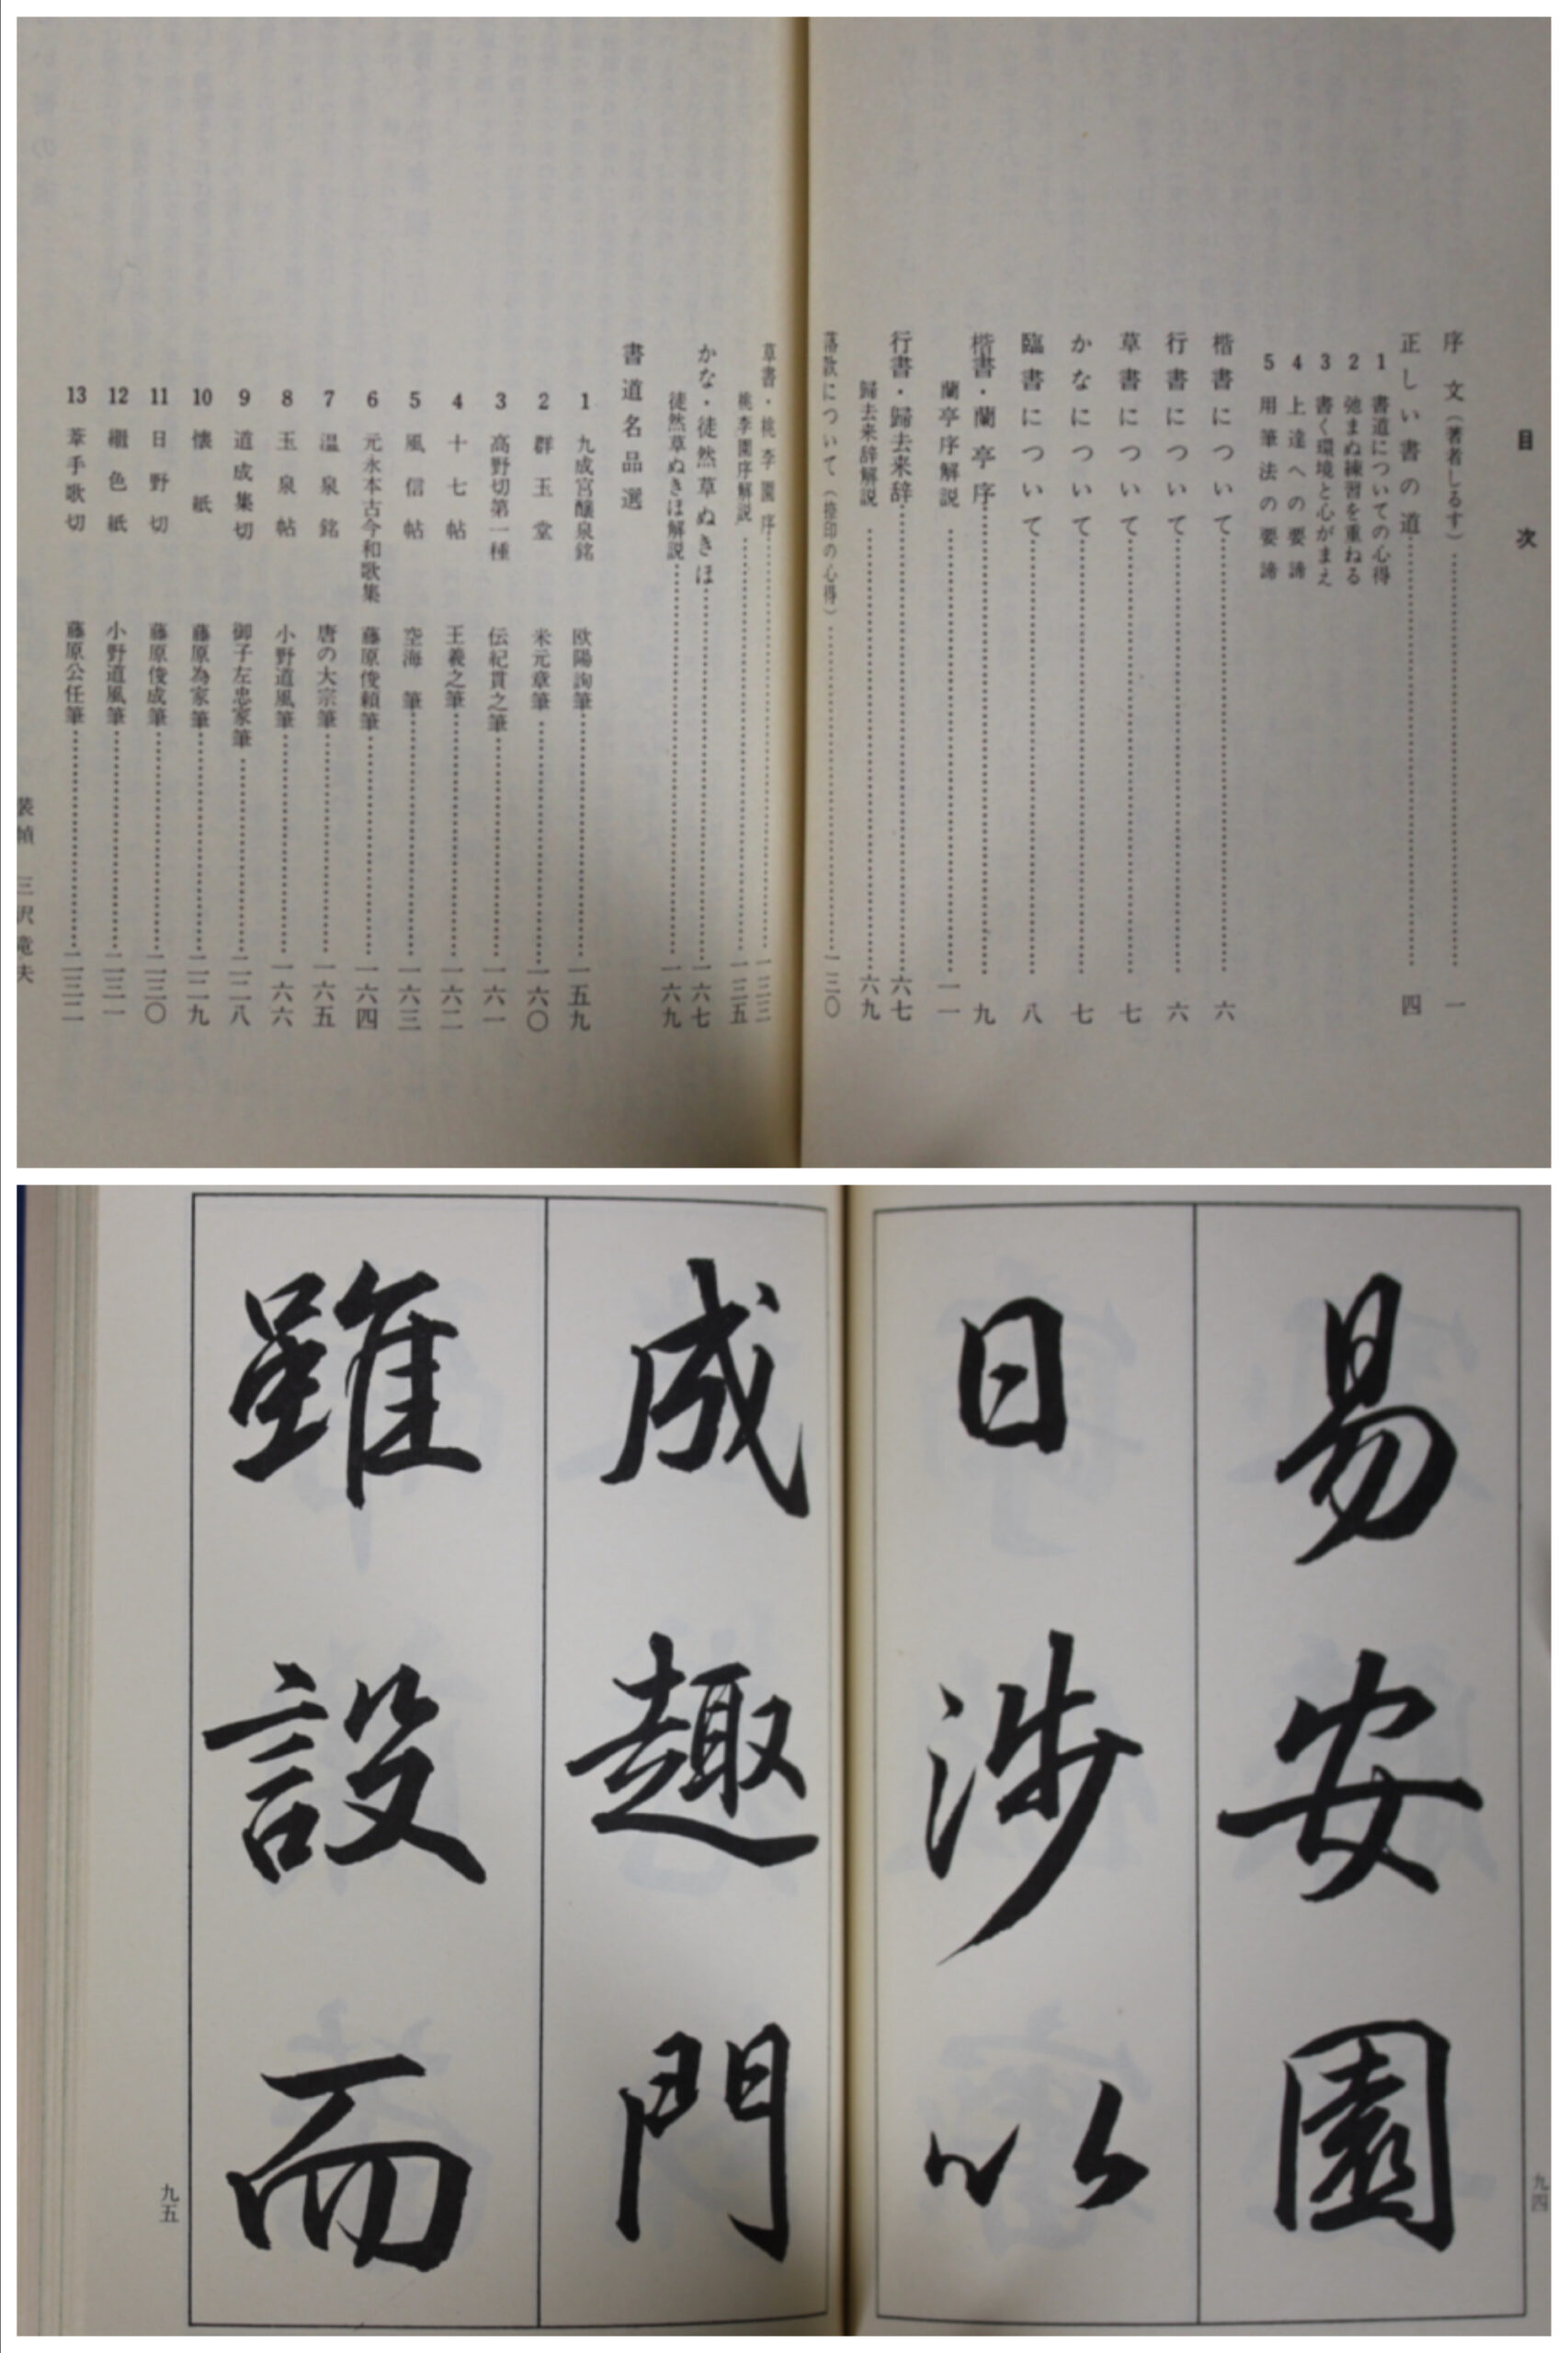 目次
序文（著者しるす） 一
正しい書の道 四
1 書道についての心得
2 弛まぬ練習を重ねる
3 書く環境と心がまえ
4 上達への要諦
5 用筆法の要諦
楷書について 六
行書について 六
草書について 七
かなについて 七
臨書について 八
楷書・蘭亭序 九
蘭亭序解説 一一
行書・歸去来辞 六七
歸去来辞解説 六九
落款について（捺印の心得） 一三〇
草書・桃李園序 一三三
桃李園序解説 一三五
かな・徒然草ぬきほ 一六七
徒然草ぬきほ解説 一六九
書道名品選
1 九成宮醸泉銘 欧陽詢筆 一五九
2 群玉堂 米元章筆 一六〇
3 高野切第一種 伝紀貫之筆 一六一
4 十七帖 王羲之筆 一六二
5 風信帖 空海筆 一六三
6 元永本古今和歌集 藤原俊頼筆 一六四
7 温泉銘 唐の大宗筆 一六五
8 玉泉帖 小野道風筆 一六六
9 道成集切 御子左忠家筆 二二八
10 懐紙 藤原為家筆 二二九
11 日野切 藤原俊成筆 二三〇
12 繼色紙 小野道風筆 二三一
13 葦手歌切 藤原公任筆 二三二
装幀 三沢竜夫
易安園
日渉以
成趣門
雖設而
九四
九五